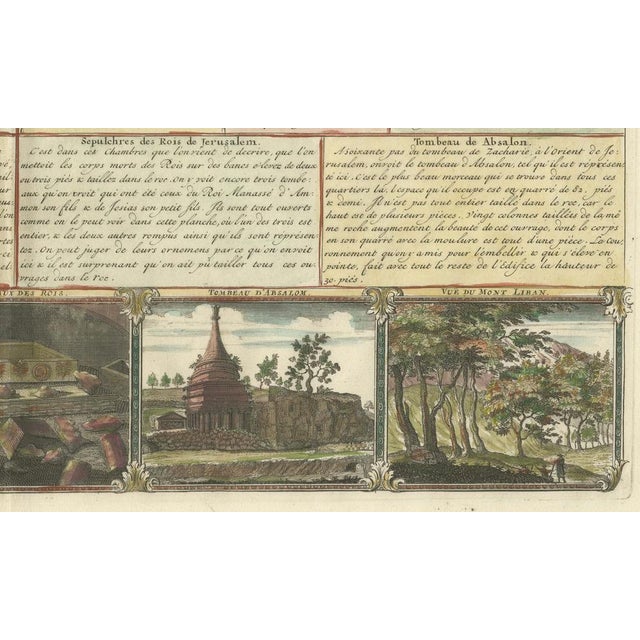 Sepulchres des Rois de Jerusalem.
C'est dans ces Chambres que l'on vient de decrire, que l'on
mettoit les corps morts des Rois sur des bancs élevez de deux
ou trois piés & taillez dans le roc. On y voit encore trois tombe-
aux qu'on croit qui ont été ceux du Roi Manassé d'Am-
mon son fils & de Josias son petit fils. Ils sont tout ouverts
comme on le peut voir dans cette planche, où l'un des trois est
entier, & les deux autres rompus ainsi qu'ils sont représen-
tez. On peut juger de leurs ornemens par ce qu'on en voit
ici & il est surprenant qu'on ait pû tailler tous ces ou-
vrages dans le roc.
Tombeau de Absalon.
A soixante pas du tombeau de Zacharie, à l'Orient de Je-
rusalem, on voit le tombeau d'Absalon, tel qu'il est représen-
té ici. C'est le plus beau morceau qui se trouve dans tous ces
quartiers là. L'espace qu'il occupe est en quarré de 82. piés
& demi. Il n'est pas tout entier taillé dans le roc, car le
haut est de plusieurs pièces. Vingt colonnes taillées de la mê-
me roche augmentent la beauté de cet ouvrage, dont le corps
en son quarré avec la moulure est tout d'une pièce. Le Cou-
ronnement qu'on y a mis pour l'embellir & qui s'eleve en
pointe, fait avec tout le reste de l'Edifice la hauteur de
30. piés.
AUX DES ROIS.
TOMBEAU D'ABSALOM.
VUE DU MONT LIBAN.